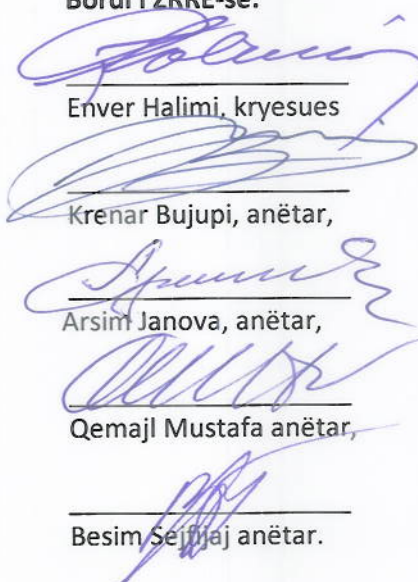 Bordi i ZRRE-së:
Enver Halimi, kryesues
Krenar Bujupi, anëtar,
Arsim Janova, anëtar,
Qemajl Mustafa anëtar,
Besim Sejfijaj anëtar.